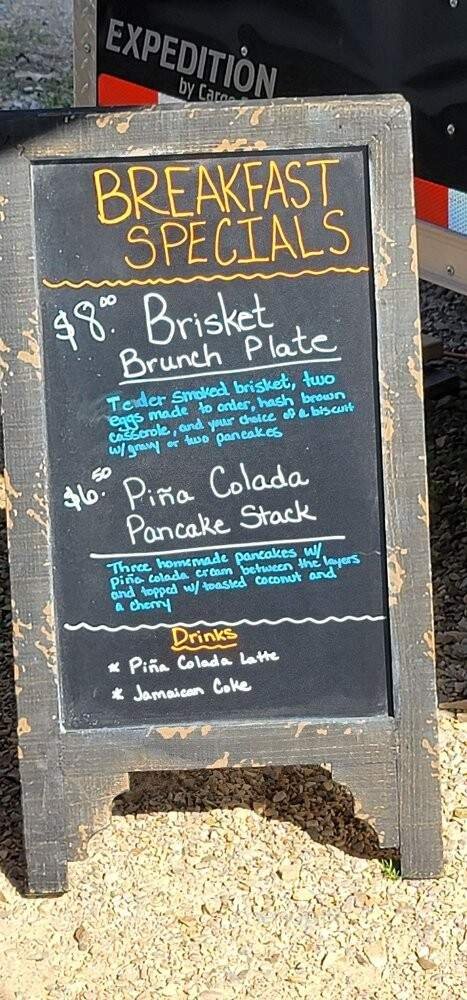 EXPEDITION
by Cargo
BREAKFAST
SPECIALS
$8.00 Brisket
Brunch Plate
Tender smoked brisket, two
eggs made to order, hash brown
casserole, and your choice of a biscuit
w/gravy or two pancakes
$6.50 Piña Colada
Pancake Stack
Three homemade pancakes w/
piña colada cream between the layers
and topped w/ toasted coconut and
a cherry
Drinks
* Piña Colada Latte
* Jamaican Coke